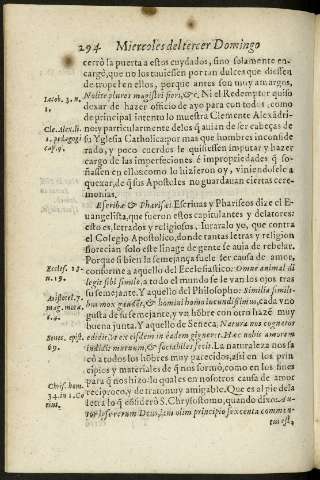 294 Miercoles del tercer Domingo
cerrò la puerta a estos cuydados, sino solamente en-
cargò, que no los tuuiessen por tan dulces que diessen
de tropel en ellos, porque antes son muy amargos,
Nolite plures magistri fieri, &c. Ni el Redemptor quiso
dexar de hazer officio de ayo para con todos, como
de principal intento lo muestra Clemente Alexãdri-
no, y particularmente delos q̃ auian de ser cabeças de
su Yglesia Catholica: por mas que hombres inconside
rado, y poco cuerdos le quisiessen imputar y hazer
cargo de las imperfeciones, é impropriedades q̃ so-
ñassen en ellos: como lo hizieron oy, viniendosele a
quexar, de q̃ sus Apostoles no guardauan ciertas cere-
monias.
Escribæ & Pharisei. Escriuas y Phariseos dize el E-
uangelista, que fueron estos capitulantes y delatores:
esto es, letrados y religiosos. Iuraralo yo, que contra
el Colegio Apostolico, donde tantas letras y religion
florecian solo este linage de gente se auia de rebelar.
Porque si bien la semejança suele ser causa de amor,
conforme a aquello del Ecclesiastico: Omne animal di
legit sibi simile, a todo el mundo se le van los ojos tras
su semejante. Y aquello del Philosopho: Similia simili-
bus mox gaudẽt, & homini homo iucundissimus, cada vno
gusta de su semejante, y vn hõbre con otro hazẽ muy
buena junta. Y aquello de Seneca, Natura nos cognatos
edidit: ex eisdem in eadem gigneret. Hæc nobis amorem
indidit mutuum, & sociabiles fecit. La naturaleza nos sa
cò a todos los hõbres muy parecidos, assi en los prin
cipios y materiales de q̃ nos formò, como en los fines
para q̃ nos hizo: lo qual es en nosotros causa de amor
reciproco, y de trato muy amigable. Que es al pie de la
letra lo q̃ cõsiderò S. Chrysostomo, quando dixo: Au-
tor
tus est,
Iacob. 3. n.
1.
Cle. Alex. li.
1. pedagogi
cap. 9.
Eccles. 13.
n. 19.
Aristotel. 7.
mag. mora.
Senec. epist.
Chris. hom.
34. in 1. Co